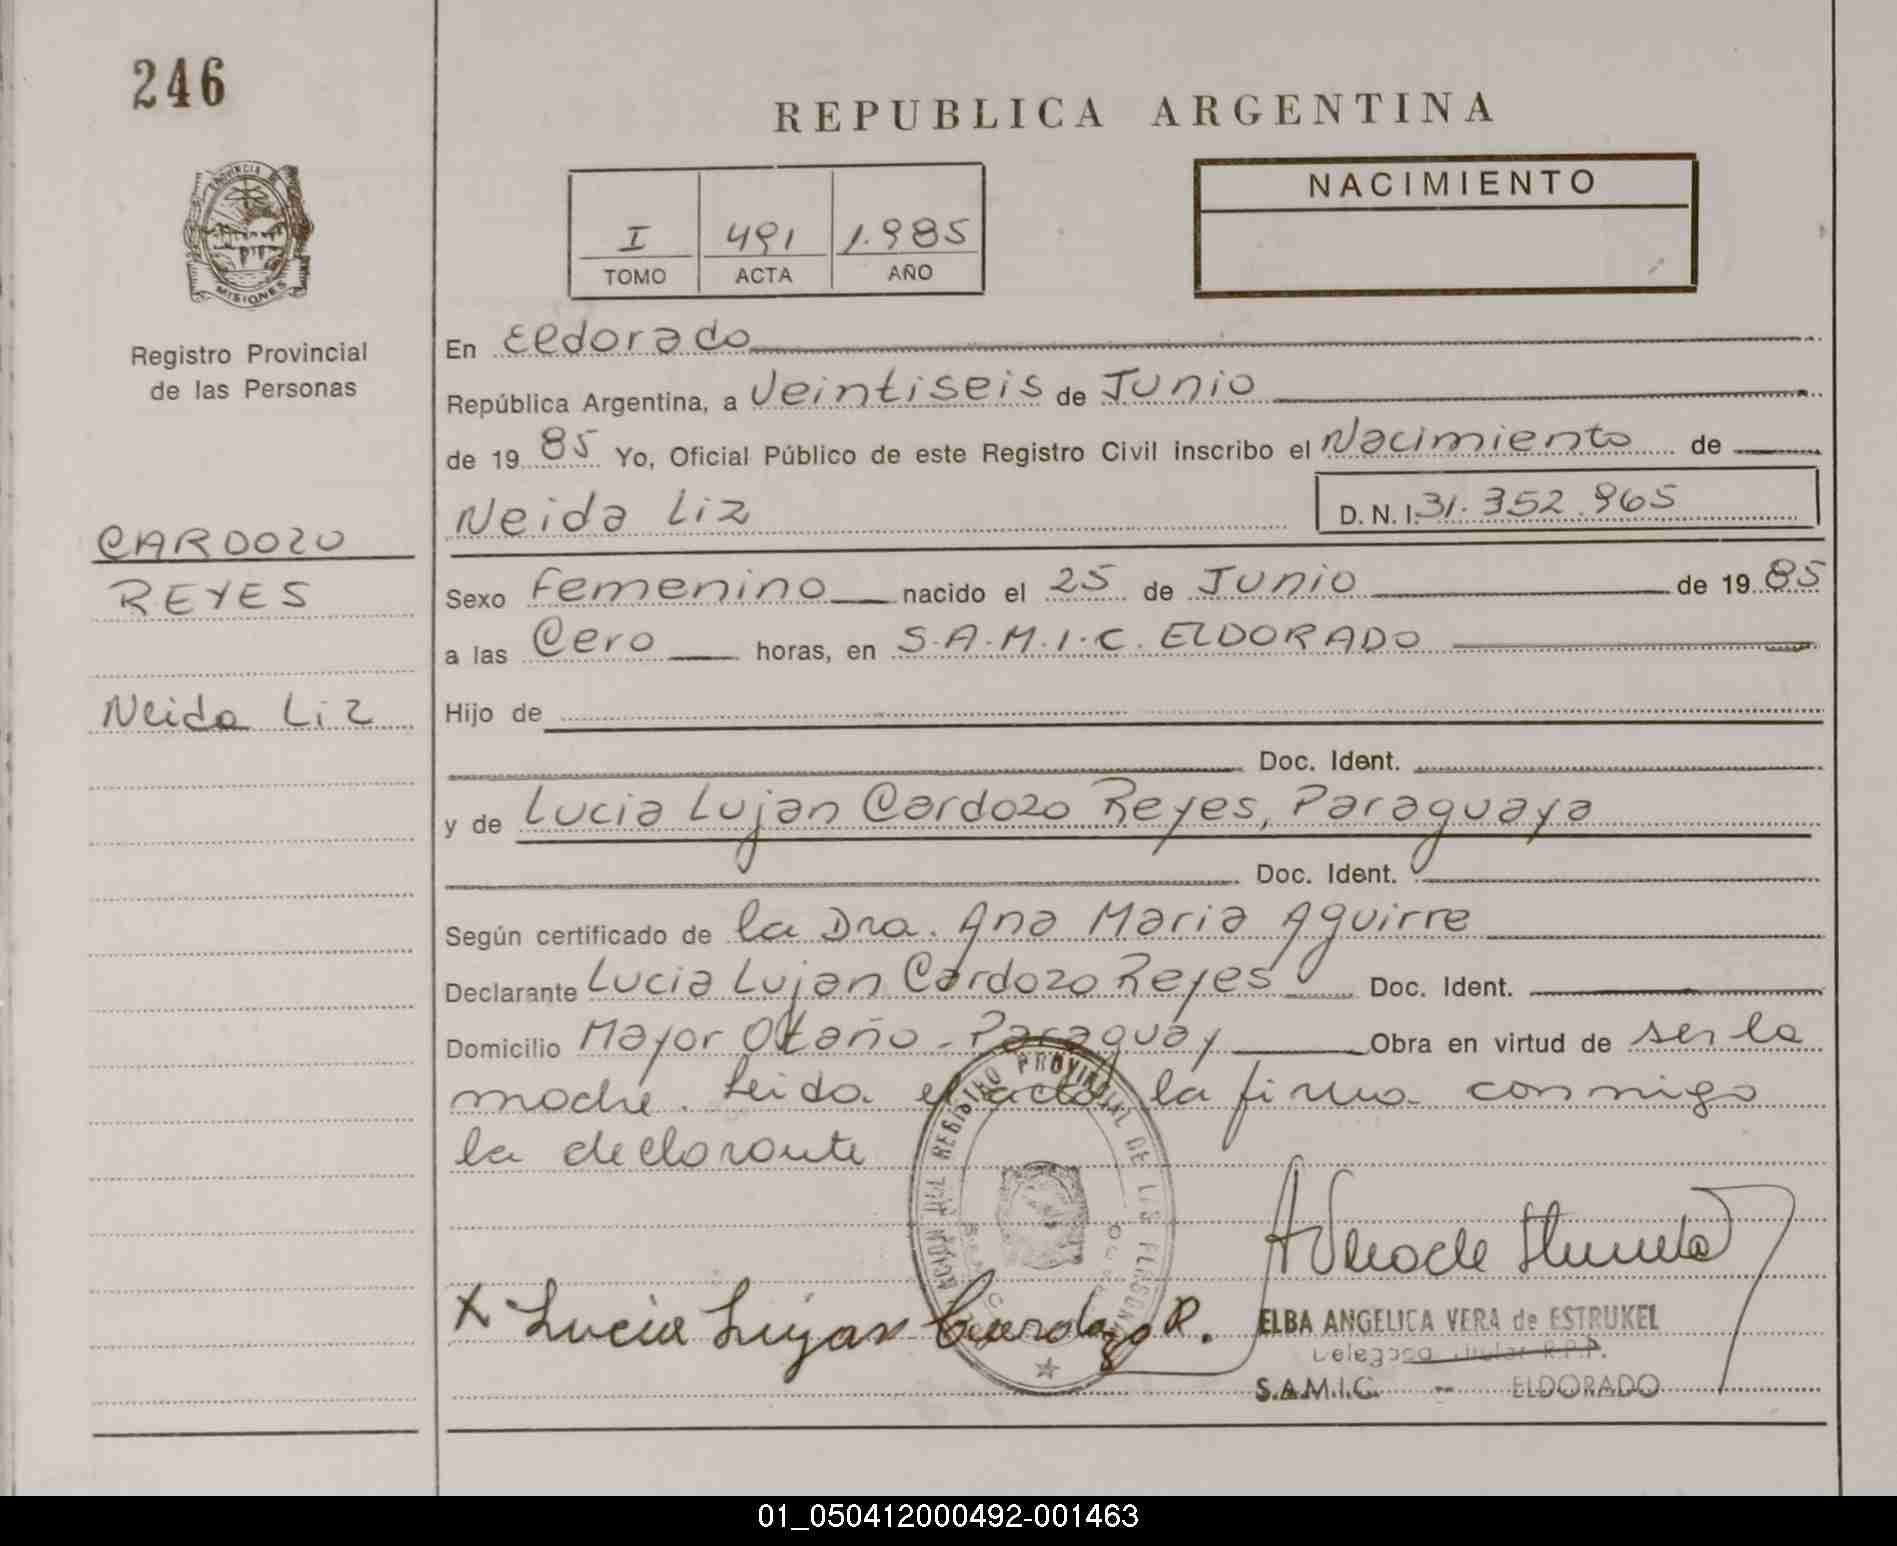 246
REPUBLICA ARGENTINA
PROVINCIA DE
MISIONES
Registro Provincial
de las Personas
I 491 1.985
TOMO ACTA AÑO
NACIMIENTO
En Eldorado
República Argentina, a Veintiseis de Junio
de 19 85 Yo, Oficial Público de este Registro Civil inscribo el Nacimiento de
Neida Liz D. N. I. 31.352.965
CARDOZO
REYES
Neida Liz
Sexo Femenino nacido el 25 de Junio de 19 85
a las Cero horas, en S.A.M.I.C. ELDORADO
Hijo de
Doc. Ident.
y de Lucia Lujan Cardozo Reyes, Paraguaya
Doc. Ident.
Según certificado de la Dra. Ana Maria Aguirre
Declarante Lucia Lujan Cardozo Reyes Doc. Ident.
Domicilio Mayor Otaño - Paraguay Obra en virtud de ser la
madre. Leida el acta, la firma conmigo
la declarante
REGISTRO PROVINCIAL DE LAS PERSONAS
X Lucia Lujan Cardozo R.
ELBA ANGELICA VERA de ESTRUKEL
Delegada Titular R.P.P.
S.A.M.I.C. - ELDORADO
01_050412000492-001463